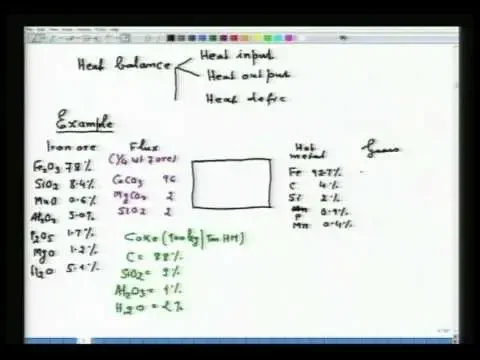 Heat balance
Heat input
Heat output
Heat defic
Example
Iron ore
Fe2O3 78%
SiO2 8.4%
MnO 0.6%
Al2O3 5.0%
P2O5 1.7%
MgO 1.2%
H2O 5.1%
Flux
(1/4 wt of ore)
CaCO3 96
MgCO3 2
SiO2 2
Coke (900kg/Ton HM)
C = 88%
SiO2 = 9%
Al2O3 = 1%
H2O = 2%
Hot
metal
Fe 92.7%
C 4%
Si 2%
P 0.9%
Mn 0.4%
Gases